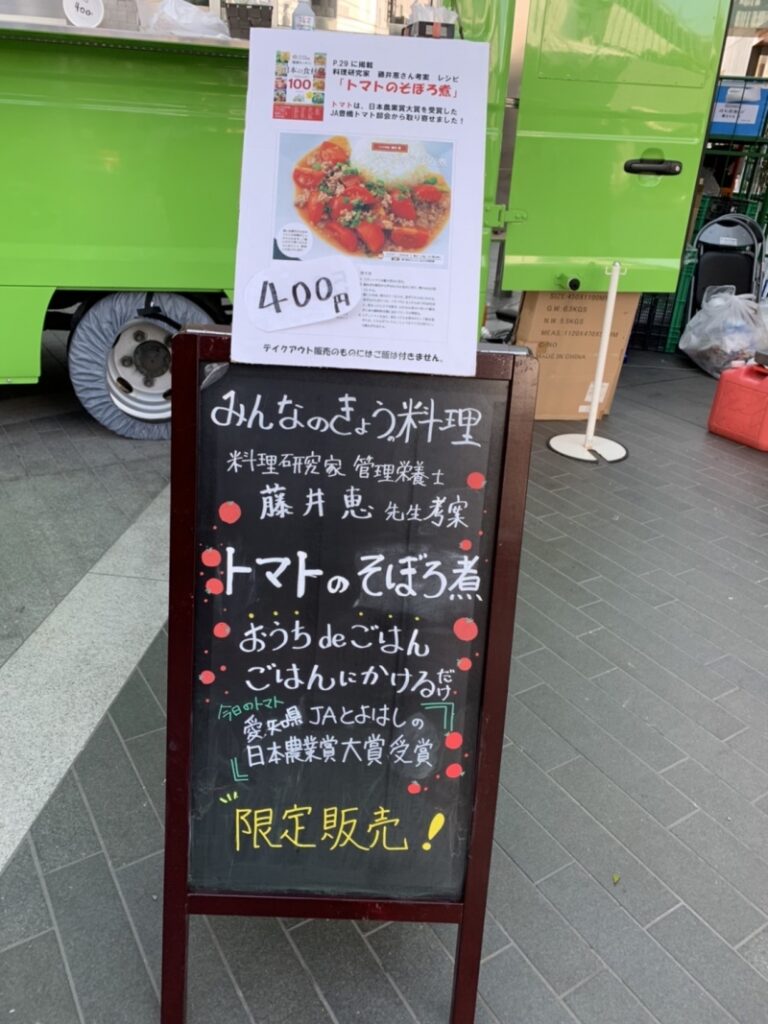 400
P.29 に掲載
料理研究家 藤井恵さん考案 レシピ
「トマトのそぼろ煮」
日本の食材帖
100
トマトは、日本農業賞大賞を受賞した
JA豊橋トマト部会から取り寄せました!
400円
テイクアウト販売のものにはご飯は付きません。
みんなのきょうの料理
料理研究家 管理栄養士
藤井恵 先生考案
トマトのそぼろ煮
おうちdeごはん
ごはんにかけるだけ
今日のトマト
愛知県 JAとよはしの
日本農業賞大賞受賞
限定販売!
SIZE: 450X1100M
G.W: 6.3KGS
N.W: 5.5KGS
MEAS: 1110X470X
C/NO
MADE IN CHINA